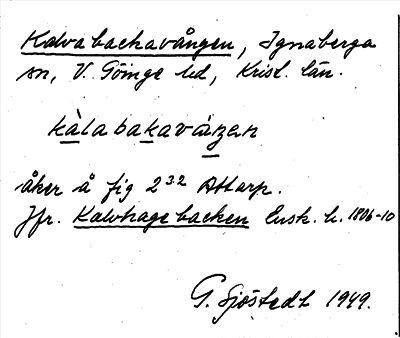 Kalvabackavången, Ignaberga
sn, V. Göinge hd, Krist. län.
kàlabakaváŋen
åker å fig 2³² Attarp.
Jfr. Kalvhagebacken Ensk. h. 1806-10
G. Sjöstedt 1949.